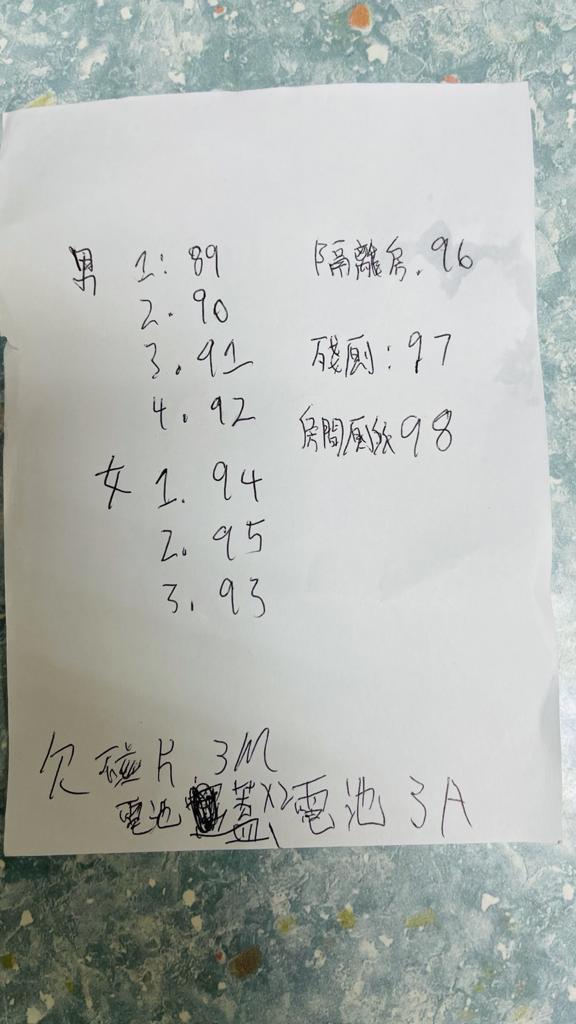 男 1: 89
2. 90
3. 91
4. 92
女 1. 94
2. 95
3. 93
隔離房. 96
殘厠: 97
房間厠所 98
欠磁片 3M
電池蓋X2 電池 3A